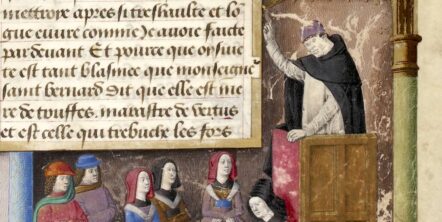 mettroie apres si treshaulte et lo
gue euure comme Je auoie faicte
par deuant Et pource que oysiue
te est tant blasmee que monseignr
saint bernard dit que elle est me
re de touffes. marastre de vertus
et est celle qui trebuche les fors